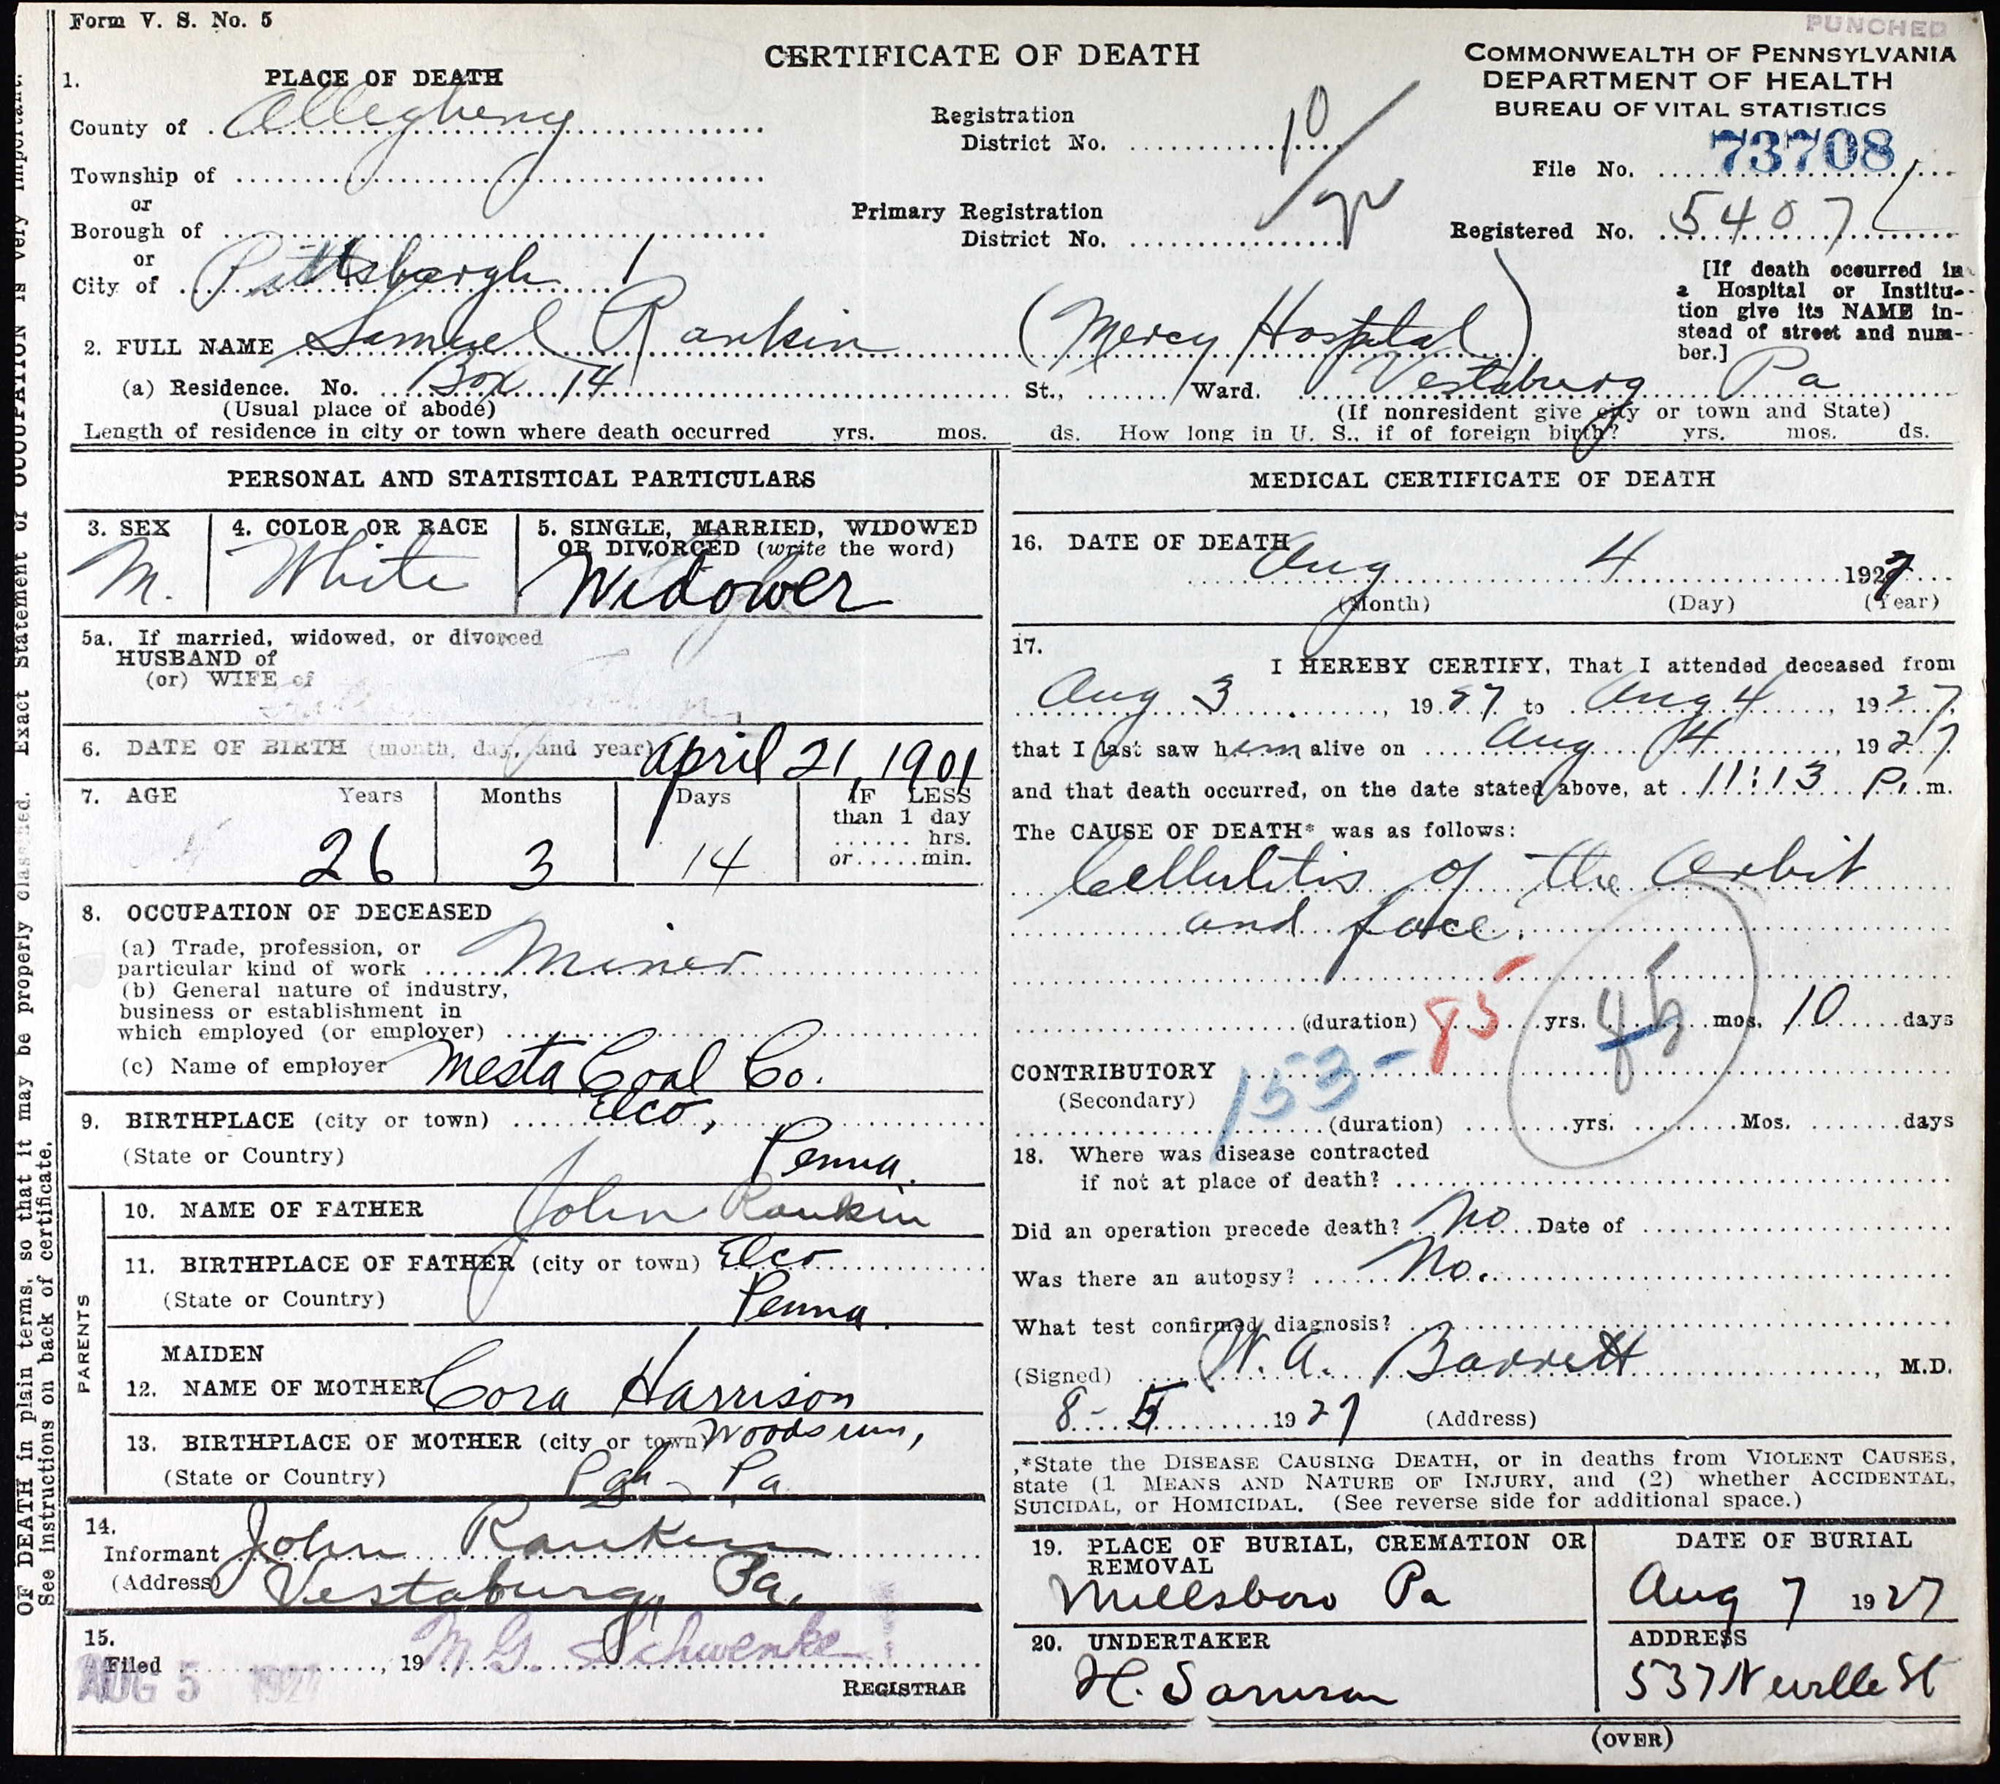 Form V. S. No. 5
PUNCHED
CERTIFICATE OF DEATH
COMMONWEALTH OF PENNSYLVANIA
DEPARTMENT OF HEALTH
BUREAU OF VITAL STATISTICS
1. PLACE OF DEATH
County of Allegheny
Township of
or
Borough of
or
City of Pittsburgh
Registration
District No. 10
Primary Registration
District No.
File No. 73708
Registered No. 5407
[If death occurred in
a Hospital or Institu-
tion give its NAME in-
stead of street and num-
ber.]
2. FULL NAME Samuel Rankin (Mercy Hospital)
(a) Residence. No. Box 14 St., Ward. Vestaburg Pa
(Usual place of abode) (If nonresident give city or town and State)
Length of residence in city or town where death occurred yrs. mos. ds. How long in U. S., if of foreign birth? yrs. mos. ds.
PERSONAL AND STATISTICAL PARTICULARS
3. SEX
M.
4. COLOR OR RACE
White
5. SINGLE, MARRIED, WIDOWED
OR DIVORCED (write the word)
Widower
5a. If married, widowed, or divorced
HUSBAND of
(or) WIFE of
6. DATE OF BIRTH (month, day, and year) April 21, 1901
7. AGE Years Months Days
26 3 14
IF LESS
than 1 day
hrs.
or min.
8. OCCUPATION OF DECEASED
(a) Trade, profession, or
particular kind of work Miner
(b) General nature of industry,
business or establishment in
which employed (or employer)
(c) Name of employer Mesta Coal Co.
9. BIRTHPLACE (city or town) Elco,
(State or Country) Penna.
PARENTS
10. NAME OF FATHER John Rankin
11. BIRTHPLACE OF FATHER (city or town) Elco
(State or Country) Penna.
MAIDEN
12. NAME OF MOTHER Cora Harrison
13. BIRTHPLACE OF MOTHER (city or town) Woods run,
(State or Country) Pgh - Pa
14.
Informant John Rankin
(Address) Vestaburg, Pa.
15.
Filed AUG 5 1927, 19 M. G. Schwenke
REGISTRAR
MEDICAL CERTIFICATE OF DEATH
16. DATE OF DEATH
Aug 4 1927
(Month) (Day) (Year)
17.
I HEREBY CERTIFY, That I attended deceased from
Aug 3, 1927 to Aug 4, 1927
that I last saw him alive on Aug 4, 1927
and that death occurred, on the date stated above, at 11:13 P. m.
The CAUSE OF DEATH* was as follows:
Cellulitis of the Orbit
and face.
(duration) 85 yrs. mos. 10 days
CONTRIBUTORY 153-
(Secondary)
(duration) yrs. Mos. days
18. Where was disease contracted
if not at place of death?
Did an operation precede death? No Date of
Was there an autopsy? No.
What test confirmed diagnosis?
(Signed) W. A. Barrett, M.D.
8-5 1927 (Address)
*State the DISEASE CAUSING DEATH, or in deaths from VIOLENT CAUSES,
state (1 MEANS AND NATURE OF INJURY, and (2) whether ACCIDENTAL,
SUICIDAL, or HOMICIDAL. (See reverse side for additional space.)
19. PLACE OF BURIAL, CREMATION OR
REMOVAL
Millsboro Pa
DATE OF BURIAL
Aug 7 1927
20. UNDERTAKER
H. Samson
ADDRESS
537 Neville St
(OVER)
OF DEATH in plain terms, so that it may be properly classified. Exact Statement of OCCUPATION is very important.
See instructions on back of certificate.